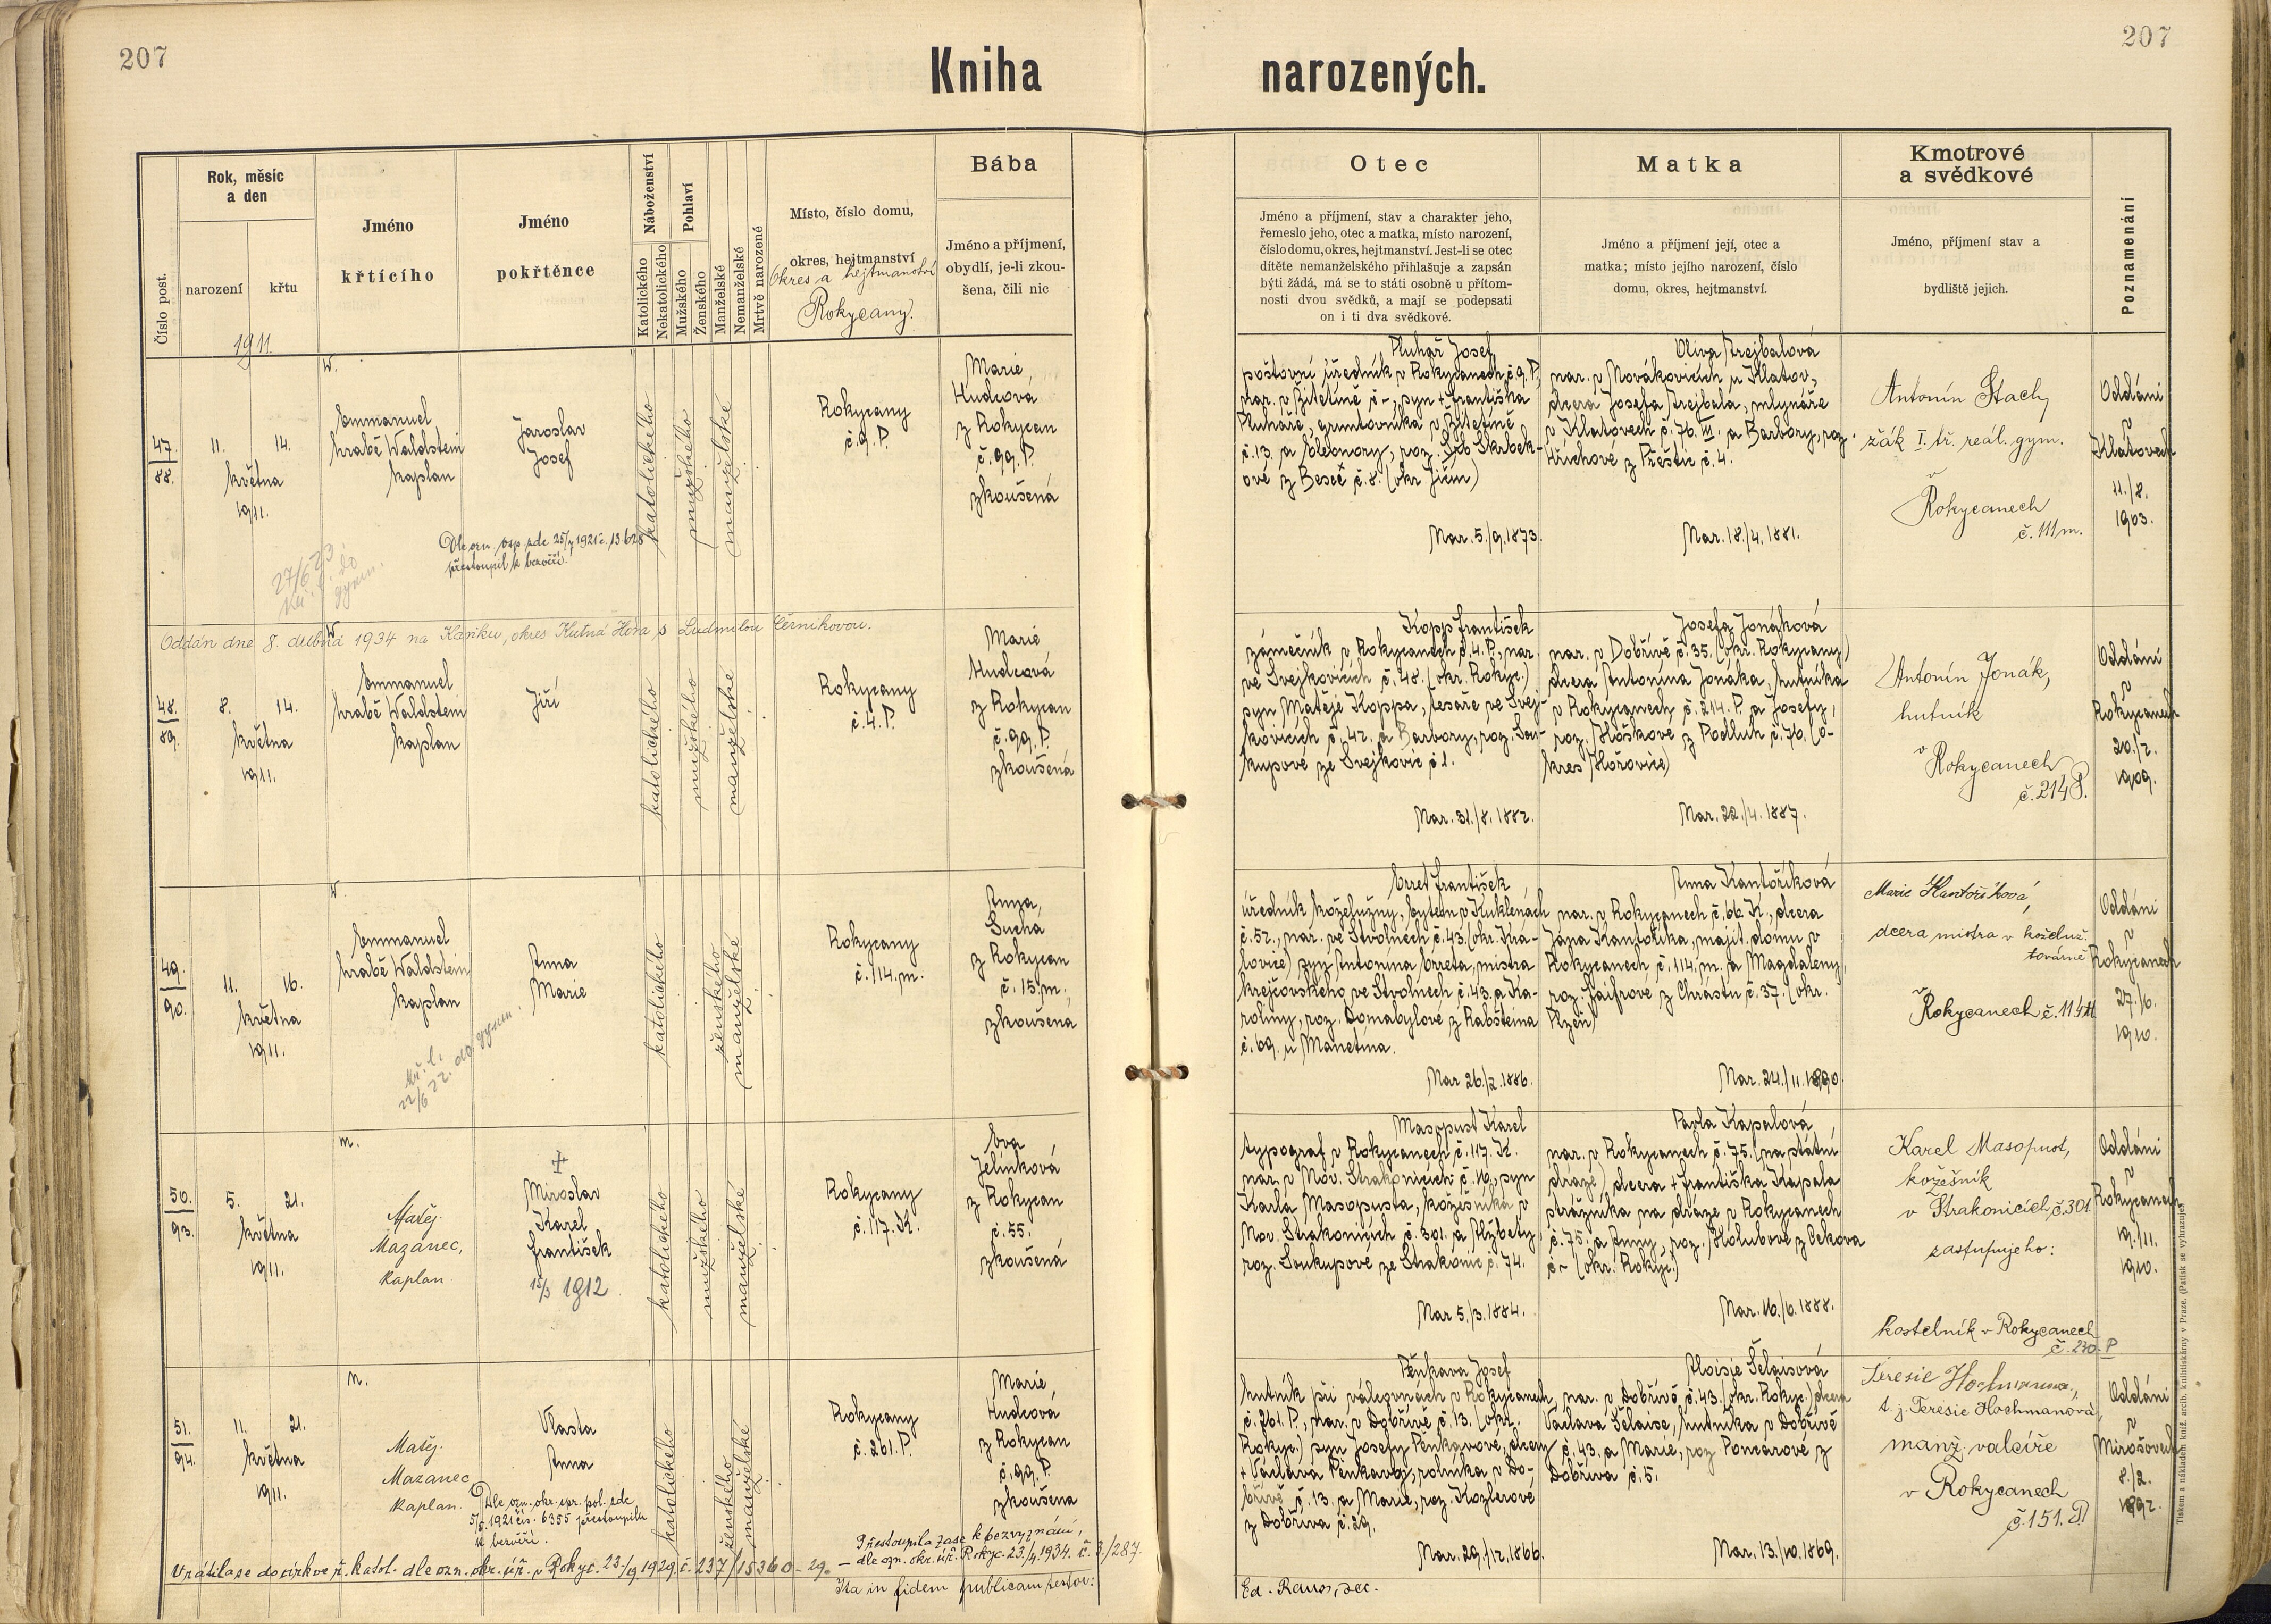 207
207
Kniha narozených.
Číslo post.
Rok, měsíc
a den
narození
křtu
1911.
Jméno
křtícího
Jméno
pokřtěnce
Náboženství
Katolického
Nekatolického
Pohlaví
Mužského
Ženského
Manželské
Nemanželské
Mrtvě narozené
Místo, číslo domu,
okres, hejtmanství
Okres a hejtmanství
Rokycany.
Bába
Jméno a příjmení,
obydlí, je-li zkou-
šena, čili nic
Otec
Jméno a příjmení, stav a charakter jeho,
řemeslo jeho, otec a matka, místo narození,
číslo domu, okres, hejtmanství. Jest-li se otec
dítěte nemanželského přihlašuje a zapsán
býti žádá, má se to státi osobně u přítom-
nosti dvou svědků, a mají se podepsati
on i ti dva svědkové.
Matka
Jméno a příjmení její, otec a
matka; místo jejího narození, číslo
domu, okres, hejtmanství.
Kmotrové
a svědkové
Jméno, příjmení stav a
bydliště jejich.
Poznamenání
47.
88.
11.
14.
května
1911.
W.
Emmanuel
hrabě Waldstein
kaplan
Jaroslav
Josef
katolického
mužského
manželské
Rokycany
č.9.P.
Marie
Hudcová
z Rokycan
č.99.P.
zkoušená
Dle ozn. osp. zde 25/7 1921 č. 13628
přestoupil k bezvěří.
27/6 23
do
gymn.
Pluhař Josef,
poštovní úředník v Rokycanech č.9.P.,
nar. v Žitětíně č-, syn + Františka
Pluhaře, gruntovníka v Žitětíně
č.13. a Eleonory, roz. Skrbek-
ové z Beseč č.8. (okr. Jičín)
Nar. 5./9. 1873.
Oliva Trejbalová
nar. v Novákovicích u Klatov,
dcera Josefa Trejbala, mlynáře
v Klatovech č.76.III. a Barbory, roz.
z Přeštic č.4.
Nar. 18./4. 1881.
Antonín Stach,
žák I. tř. reál. gym.
v
Rokycanech
č.111 m.
Oddáni
v
Klatovech
11./8.
1903.
Oddán dne 8. dubna 1934 na Kaňku, okres Kutná Hora, s Ludmilou Černíkovou.
48.
89.
8.
14.
května
1911.
W
Emmanuel
hrabě Waldstein
kaplan
Jiří
katolického
mužského
manželské
Rokycany
č.4.P.
Marie
Hudcová
z Rokycan
č.99.P.
zkoušená
Kopp František
zámečník v Rokycanech č.4.P., nar.
ve Svejkovicích č.48. (okr. Rokyc.)
syn Matěje Koppa, tesaře ve Svej-
kovicích č.42. a Barbory, roz. Sou-
kupové ze Svejkovic č.1.
Nar. 31./8. 1882.
Josefa Jonáková
nar. v Dobřívě č.35. (okr. Rokycany)
dcera Antonína Jonáka, hutníka
v Rokycanech č.214.P. a Josefy,
roz. Hoškové z Podluh č.76. (o-
kres Hořovice)
Nar. 22./4. 1887.
Antonín Jonák,
hutník
v
Rokycanech
č.214 P.
Oddáni
v
Rokycanech
20./2.
1909.
49.
90.
11.
16.
května
1911.
W.
Emmanuel
hrabě Waldstein
kaplan
Anna
Marie
kř. l.
22/6 22. do gymn.
katolického
ženského
manželské
Rokycany
č.114.m.
Anna,
Suchá
z Rokycan
č.15.m.,
zkoušena
Erret František
úředník koželužny, bytem v Kuklenách
č.52., nar. ve Stvolnech č.43. (okr. Kra-
lovice) syn Antonína Erreta, mistra
krejčovského ve Stvolnech č.43. a Ka-
roliny, roz. Domabylové z Rabšteina
č.69. u Manetína.
Nar 26./2. 1886.
Anna Kantoříková
nar. v Rokycanech č.66 K., dcera
Jana Kantoříka, majit. domu v
Rokycanech č.114.m. a Magdaleny,
roz. Jaifrové z Chrástu č.37. (okr.
Plzeň)
Nar. 24./11. 1890.
Marie Kantoříková,
dcera mistra v koželuž.
továrně
v
Rokycanech č.114 M
Oddáni
v
Rokycanech
27./6.
1910.
50.
93.
5.
21.
května
1911.
m.
Matěj
Mazanec,
kaplan.
†
Miroslav
Karel
František
15/3 1912
katolického
mužského
manželské
Rokycany
č.117.K.
Eva
Jelínková
z Rokycan
č.55.
zkoušená
Masopust Karel
typograf v Rokycanech č.117. K.
nar. v Nov. Strakonicích č.16., syn
Karla Masopusta, kožešníka v
Nov. Strakonicích č.301. a Alžběty,
roz. Soukupové ze Strakonic č.74.
Nar 5./3. 1884.
Pavla Kapalová
nar. v Rokycanech č.75. (na státní
dráze) dcera + Františka Kapala
strážníka na dráze v Rokycanech
č.75. a Anny, roz. Holubové z Cekova
č- (okr. Rokyc.)
Nar. 16./6. 1888.
Karel Masopust,
kožešník
v Strakonicích, č.301
zastupuje ho:
kostelník v Rokycanech
č.230.P
Oddáni
v
Rokycanech
19./11.
1910.
51.
94.
11.
21.
května
1911.
m.
Matěj
Mazanec
kaplan.
Vlasta
Anna
Dle ozn. okr. spr. pol. zde
5/5. 1921 čís. 6355 přestoupila
k bezvěří.
katolického
ženského
manželské
Rokycany
č.261.P.
Marie
Hudcová
z Rokycan
č.99.P.
zkoušena
Pěnkava Josef
hutník při válcovnách v Rokycanech
č.261.P., nar. v Dobřívě č.13. (okr.
Rokyc.) syn Josefy Pěnkavové, dcery
+ Václava Pěnkavy, rolníka v Do-
břívě č.13. a Marie, roz. Kozlerové
z Dobříva č.29.
Nar. 29./12. 1866.
Aloisie Šelaisová
nar. v Dobřívě č.43. (okr. Rokyc.) dcera
Václava Šelaise, hutníka v Dobřívě
č.43. a Marie, roz Poncarové z
Dobříva č.5.
Nar. 13./10. 1869.
Teresie Hochmanova,
t. j. Teresie Hochmanová,
manž. valcíře
v Rokycanech
č.151.P.
Oddáni
v
Mirošově
8./2.
1892.
Vrátila se do církve ř. katol. dle ozn. okr. úř. v Rokyc. 23./9 1929. č. 237/15360-29.
Přestoupila zase k bezvyznání,
- dle ozn. okr. úř. Rokyc. 23./4. 1934. č. 3/287.
Ita in fidem publicam testor:
Ed. Raus, dec.
Tiskem a nákladem kníž. arcib. knihtiskárny v Praze. (Patisk se vyhrazuje.)